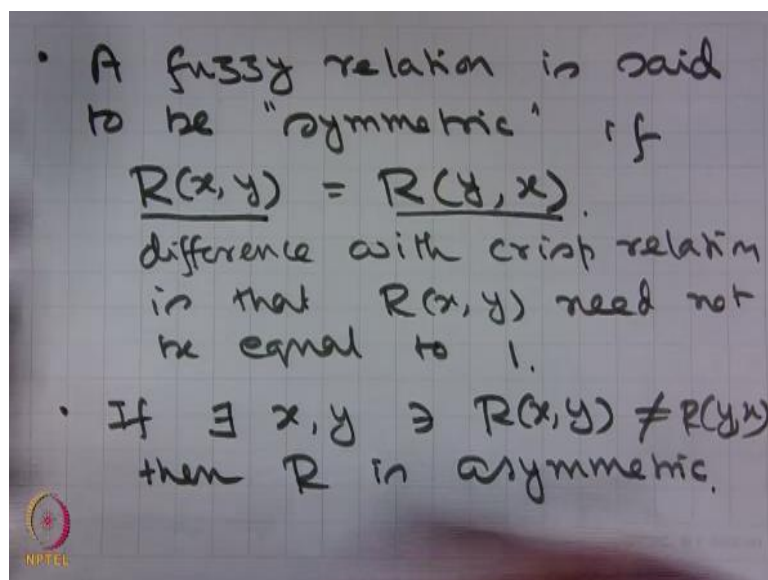 • A fuzzy relation is said
to be "symmetric" if
R(x, y) = R(y, x).
difference with crisp relation
is that R(x, y) need not
be equal to 1.
• If ∃ x, y ∋ R(x, y) ≠ R(y, x)
then R is asymmetric.
NPTEL